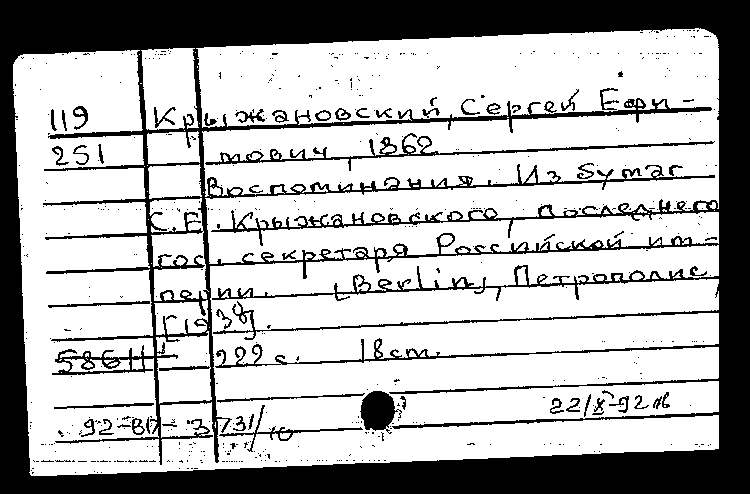 119 Крыжановский, Сергей Ефи-
251 мович, 1862
Воспоминания. Из бумаг
С.Е. Крыжановского, последнего
гос. секретаря Российской им-
перии. [Berlin], Петрополис,
[1938].
58611 222 с. 18 cm.
92-ВП-3731/10 22/X-92